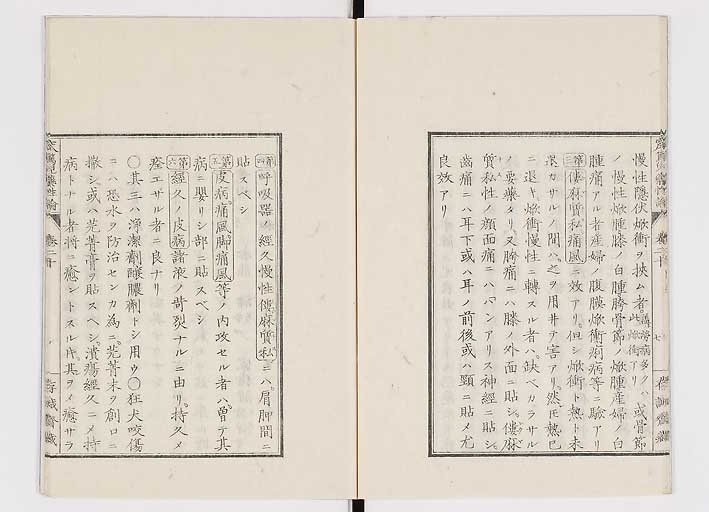 慢性隠伏焮衝ヲ挾ム者溝瘡病多クハ此焮衝アリ或骨節
ノ慢性焮腫膝ノ白腫胯骨節焮腫産婦ノ白
腫痛アル者産婦ノ腹膜焮衝痢病等ニ驗アリ
第三僂麻質私痛風ニ效アリ但シ焮衝ト熱ト未
罷カサルノ間ハ之ヲ用井テ害アリ然𪜈熱已
ニ退キ焮衝慢性ニ轉スル者ハ缺ベカラサル
ノ要藥タリ又胯痛ニハ膝ノ外面ニ貼シ僂麻
質私性ノ顔面痛ニハパンアリス神經ニ貼シ
齒痛ニハ耳下或ハ耳ノ前後或ハ頸ニ貼メ尤
良效アリ
第四呼吸器ノ經久慢性僂麻質私ニハ肩胛間ニ
貼スベシ
第五皮病痛風脚痛風等ノ内攻セル者ハ曽テ其
病ニ嬰リシ部ニ貼スベシ
第六經久ノ皮病諸液ノ苛烈ナルニ由リ持久メ
痊エザル者ニ良ナリ
〇其三ハ淨潔劑釀膿劑トシ用ウ〇狂犬咬傷
ニハ恐水ヲ防治センカ為ニ芫菁末ヲ創口ニ
撒シ或ハ芫菁膏ヲ貼スベシ潰瘍經久ニメ持
病トナル者将ニ癒ントスル𪜈其ヲメ癒サラ